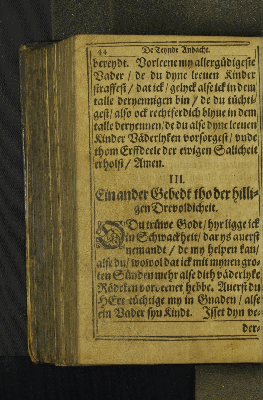 44 De Teynde Andacht.
bereydt. Vorleene my allergüdigeste
Vader / de du dyne leeuen Kinder
straffest / dat ick / gelyck alse ick in dem
talle deryennigen bin / de du tüchti-
gest / also ock rechtferdich blyue in dem
talle deryennen / de du alse dyne leeuen
Kinder Väderlyken vorsorgest / vnde
thom Erffdeele der ewigen Salicheit
erholst / Amen.
III.
Ein ander Gebedt tho der hilli-
gen Drevoldicheit.
O Du trüwe Godt / hyr ligge ick
in Schwackheit / dar ys auerst
nemandt / de my helpen kan /
alse du / wowol dat ick mit mynen gro-
ten Sünden mehr alse dith väderlyke
Rödeken vordenet hebbe. Auerst du
HErr tüchtige my in Gnaden / alse
ein Vader syn Kindt. Isset dyn ve-
der-